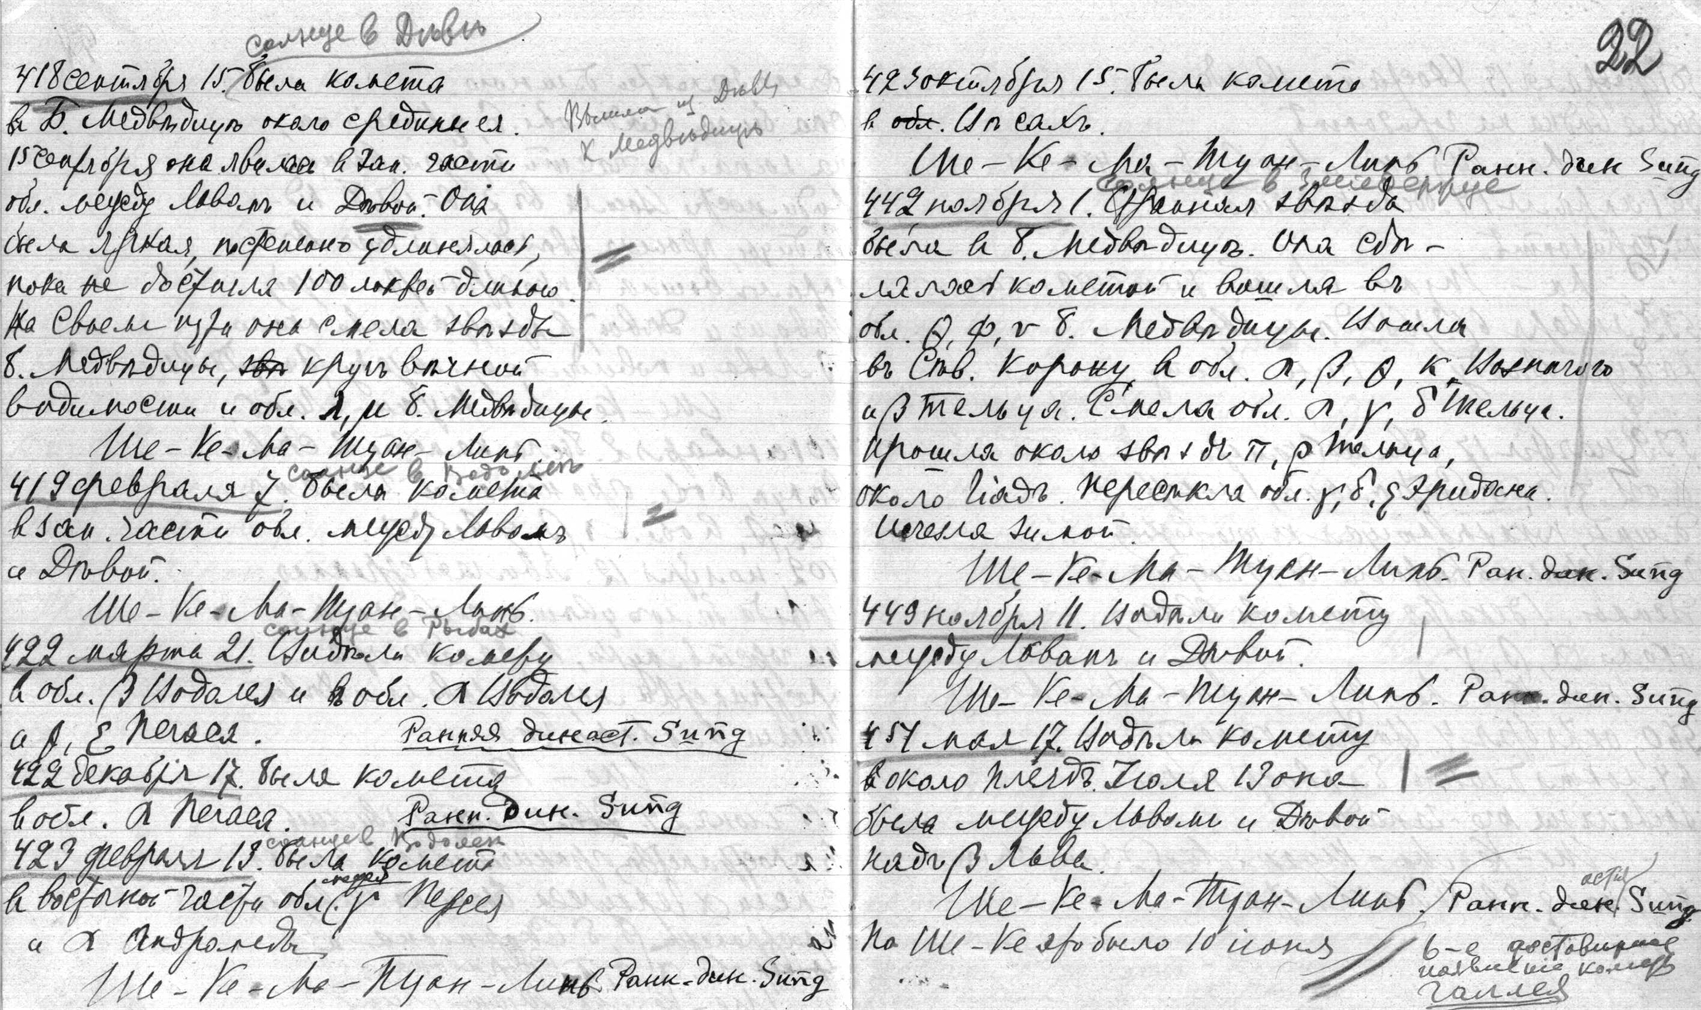 солнце в Дѣвѣ
418 сентября 15. была комета
в Б. Медвѣдицѣ около средины ея.
Вышла из Дѣвы
к Медвѣдицѣ
15 сентября она явилась в зап. части
обл. между Львомъ и Дѣвой. Она
была яркая, постепенно удлинялась,
пока не достигла 100 локтей длиною.
На своем пути она смела звѣзды
б. Медвѣдицы, кругъ вѣчной
видимости и обл. λ, μ б. Медвѣдицы.
Ше-Ке. Ма-Туан-Линь.
солнце в Водолеѣ
419 февраля 7. была комета
в зап. части обл. между Львомъ
и Дѣвой.
Ше-Ке. Ма-Туан-Линь.
солнце в Рыбах
422 марта 21. Видѣли комету
в обл. β Водолея и в обл. α Водолея
и θ, ε Пегаса. Ранняя династ. Sung
422 декабря 17. была комета
в обл. α Пегаса. Ранн. дин. Sung
солнце в Водолеѣ
423 февраля 13. была комета
в восточной части обл. между γ Пегаса
и α Андромеды
Ше-Ке. Ма-Туан-Линь. Ранн. дин. Sung
22
423 октября 15. была комета
в обл. Вѣсахъ.
Ше-Ке-Ма-Туан-Линь Ранн. дин Sung
солнце в Змѣедержце
442 ноября 1. Странная звѣзда
была в б. Медвѣдицѣ. Она сдѣ-
лалась кометой и вошла въ
обл. θ, φ, ν б. Медвѣдицы. Вошла
въ Сѣв. Корону, в обл. α, β, θ, κ, Возничаго
и β Тельца. Смела обл. α, γ, δ Тельца.
Прошла около звѣздъ π, ρ Тельца,
около Гіадъ. Пересѣкла обл. γ, δ, ε Эридана.
Исчезла зимой.
Ше-Ке-Ма-Туан-Линь. Ран. дин. Sung
449 ноября 11. Видѣли комету
между Львомъ и Дѣвой.
Ше-Ке-Ма-Туан-Линь. Ранн. дин. Sung
451 мая 17. Видѣли комету
около Плеядъ. Июля 13 она
была между Львомъ и Дѣвой
надъ β Льва.
Ше-Ке-Ма-Туан-Линь. Ранн. дин. Sung
По Ше-Ке это было 10 июня
6-е достовѣрное
появление кометы
Галлея